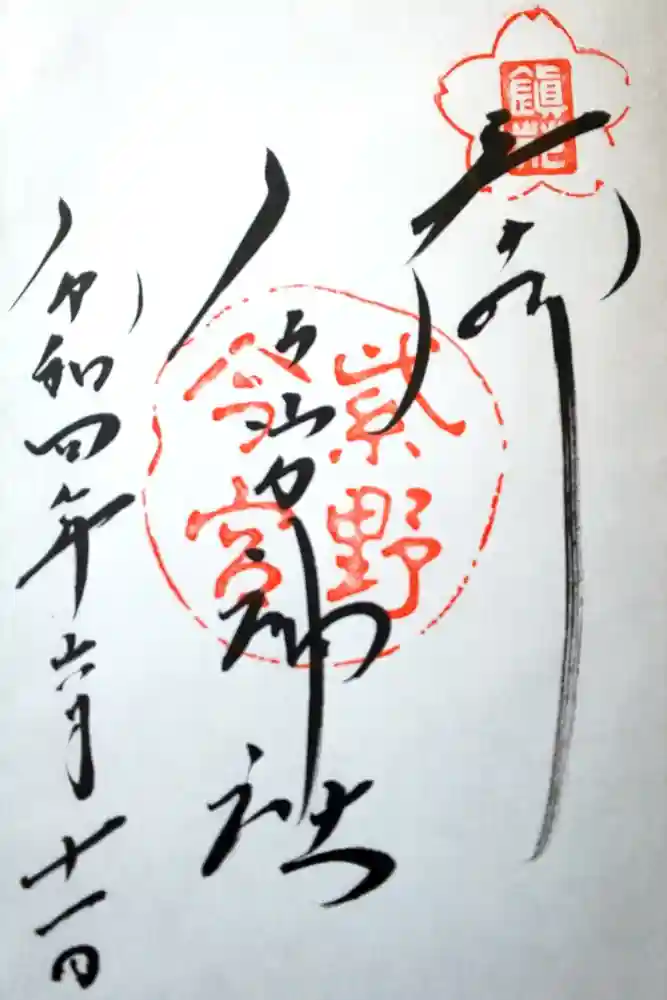 鎮花
奉拝
紫野
今宮
今宮神社
令和四年六月十一日